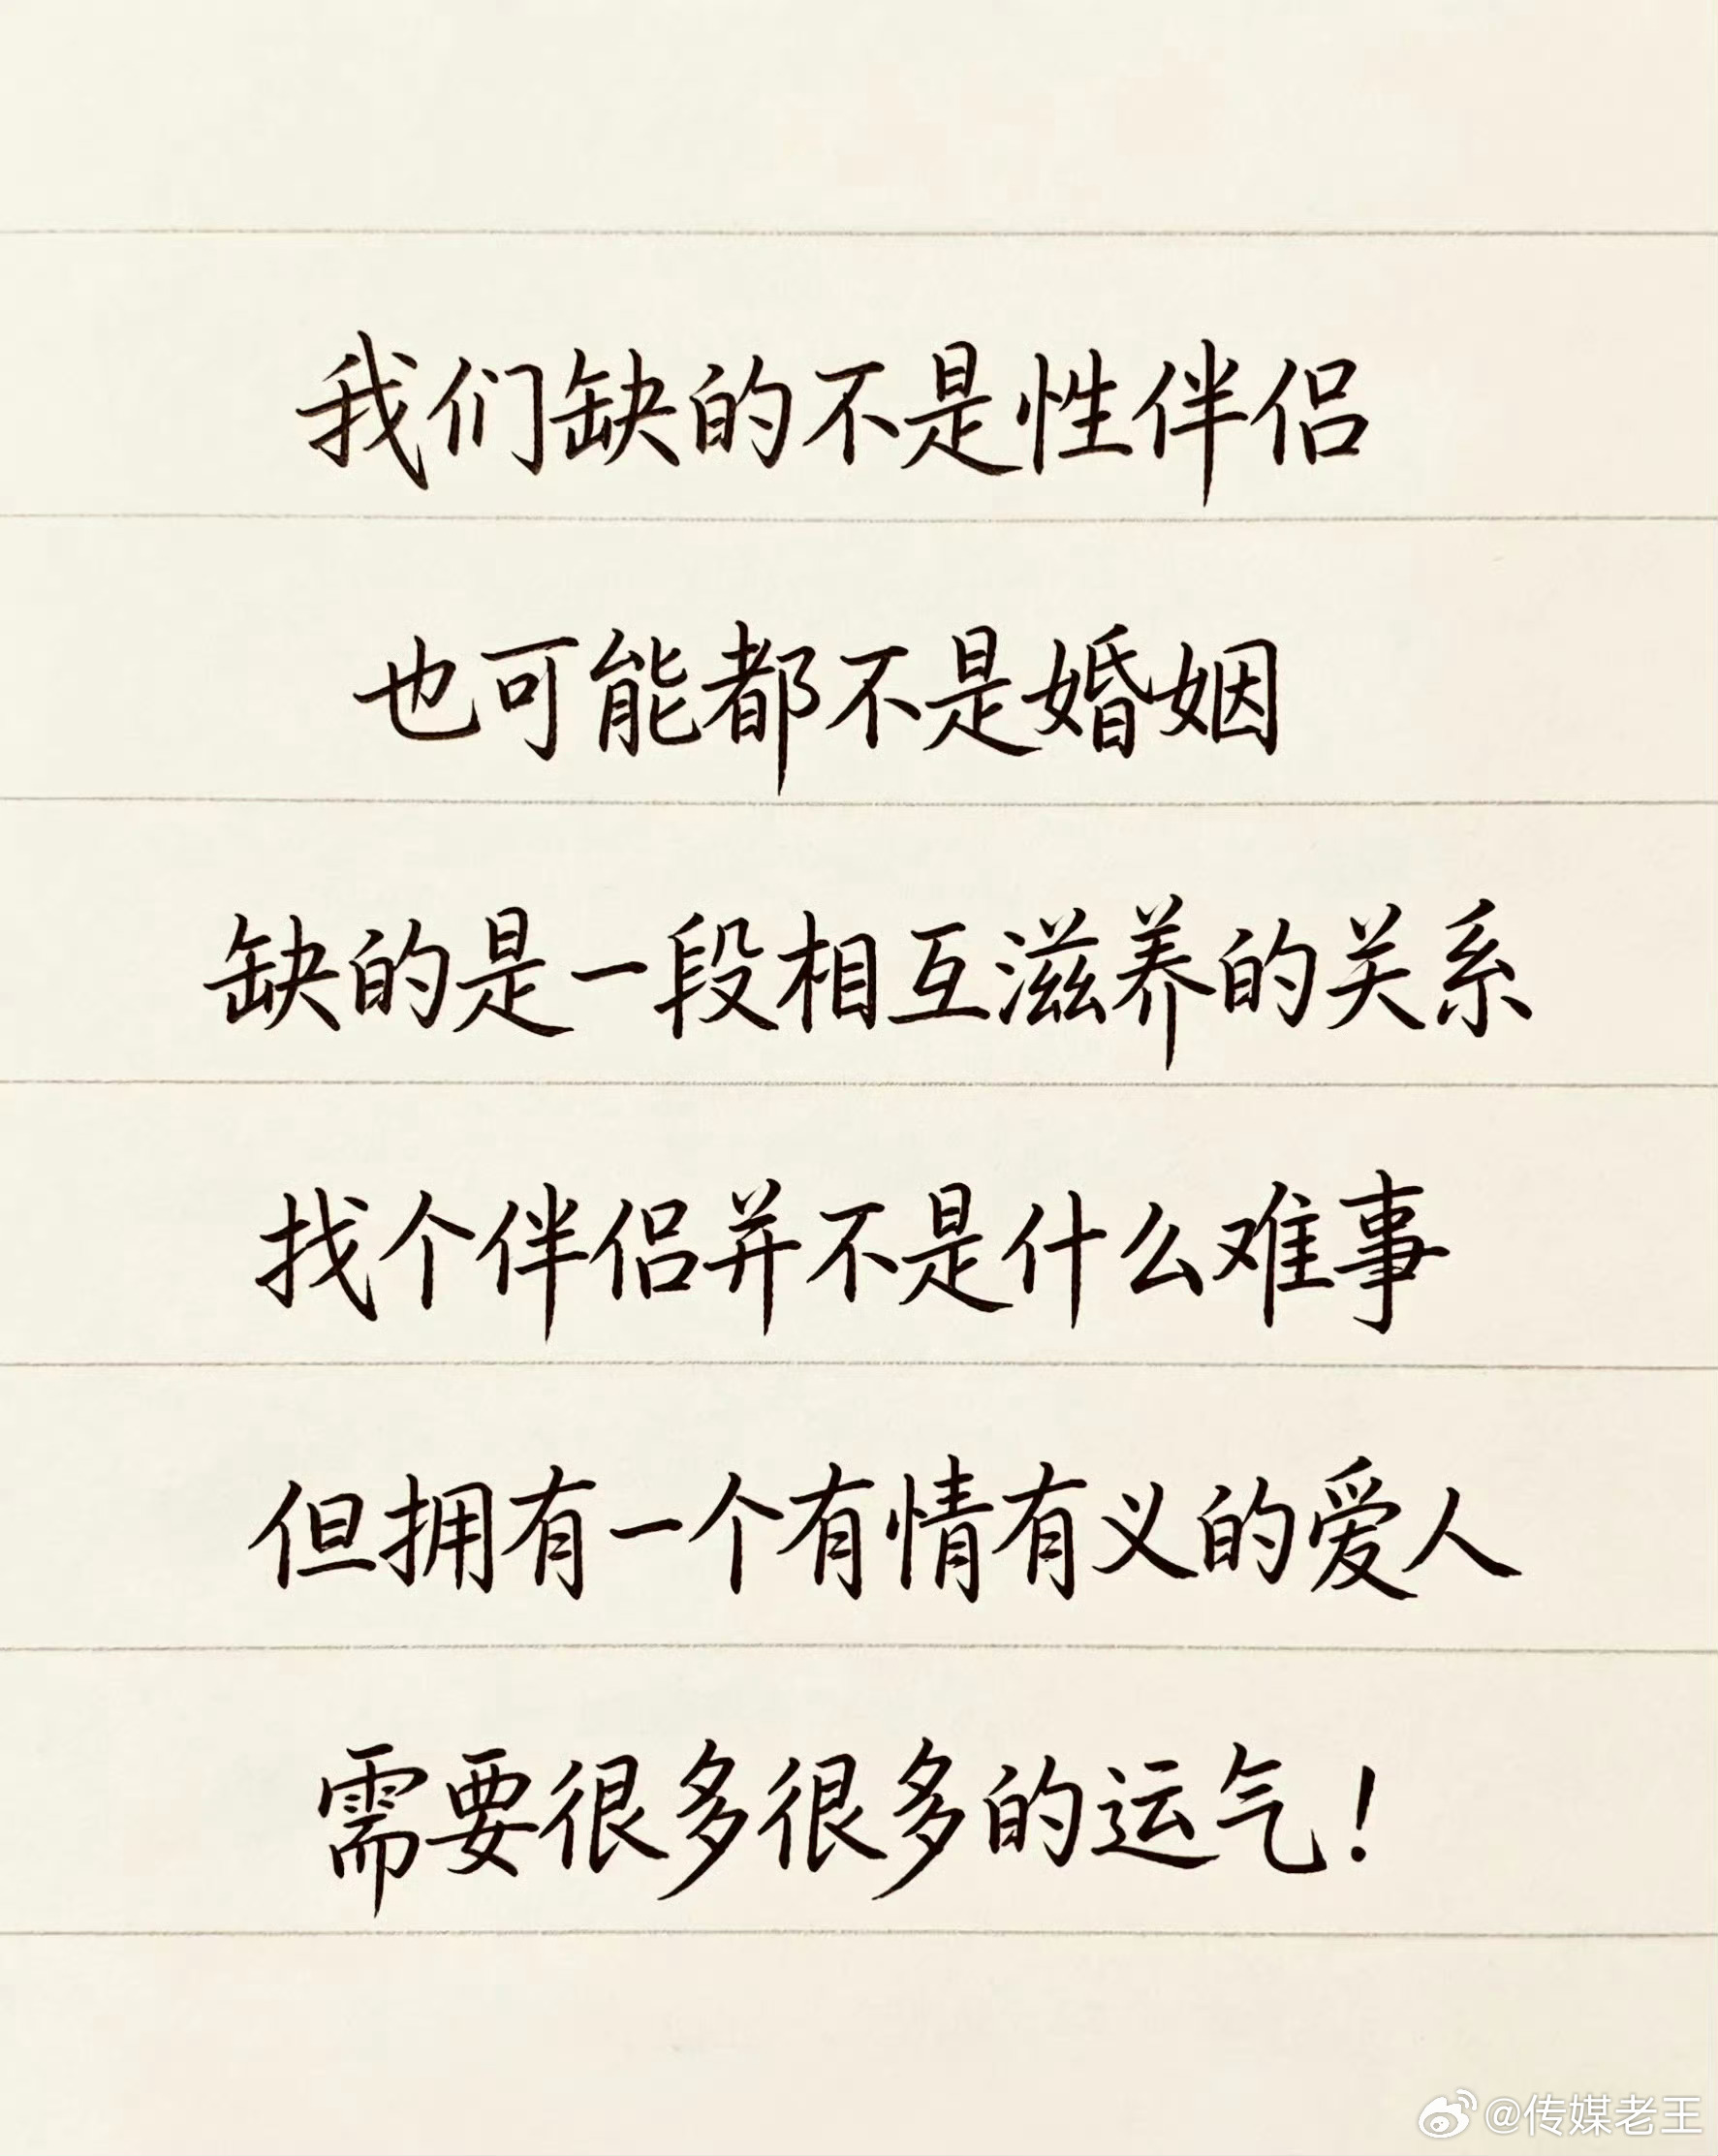 我们缺的不是性伴侣
也可能都不是婚姻
缺的是一段相互滋养的关系
找个伴侣并不是什么难事
但拥有一个有情有义的爱人
需要很多很多的运气！
@传媒老王